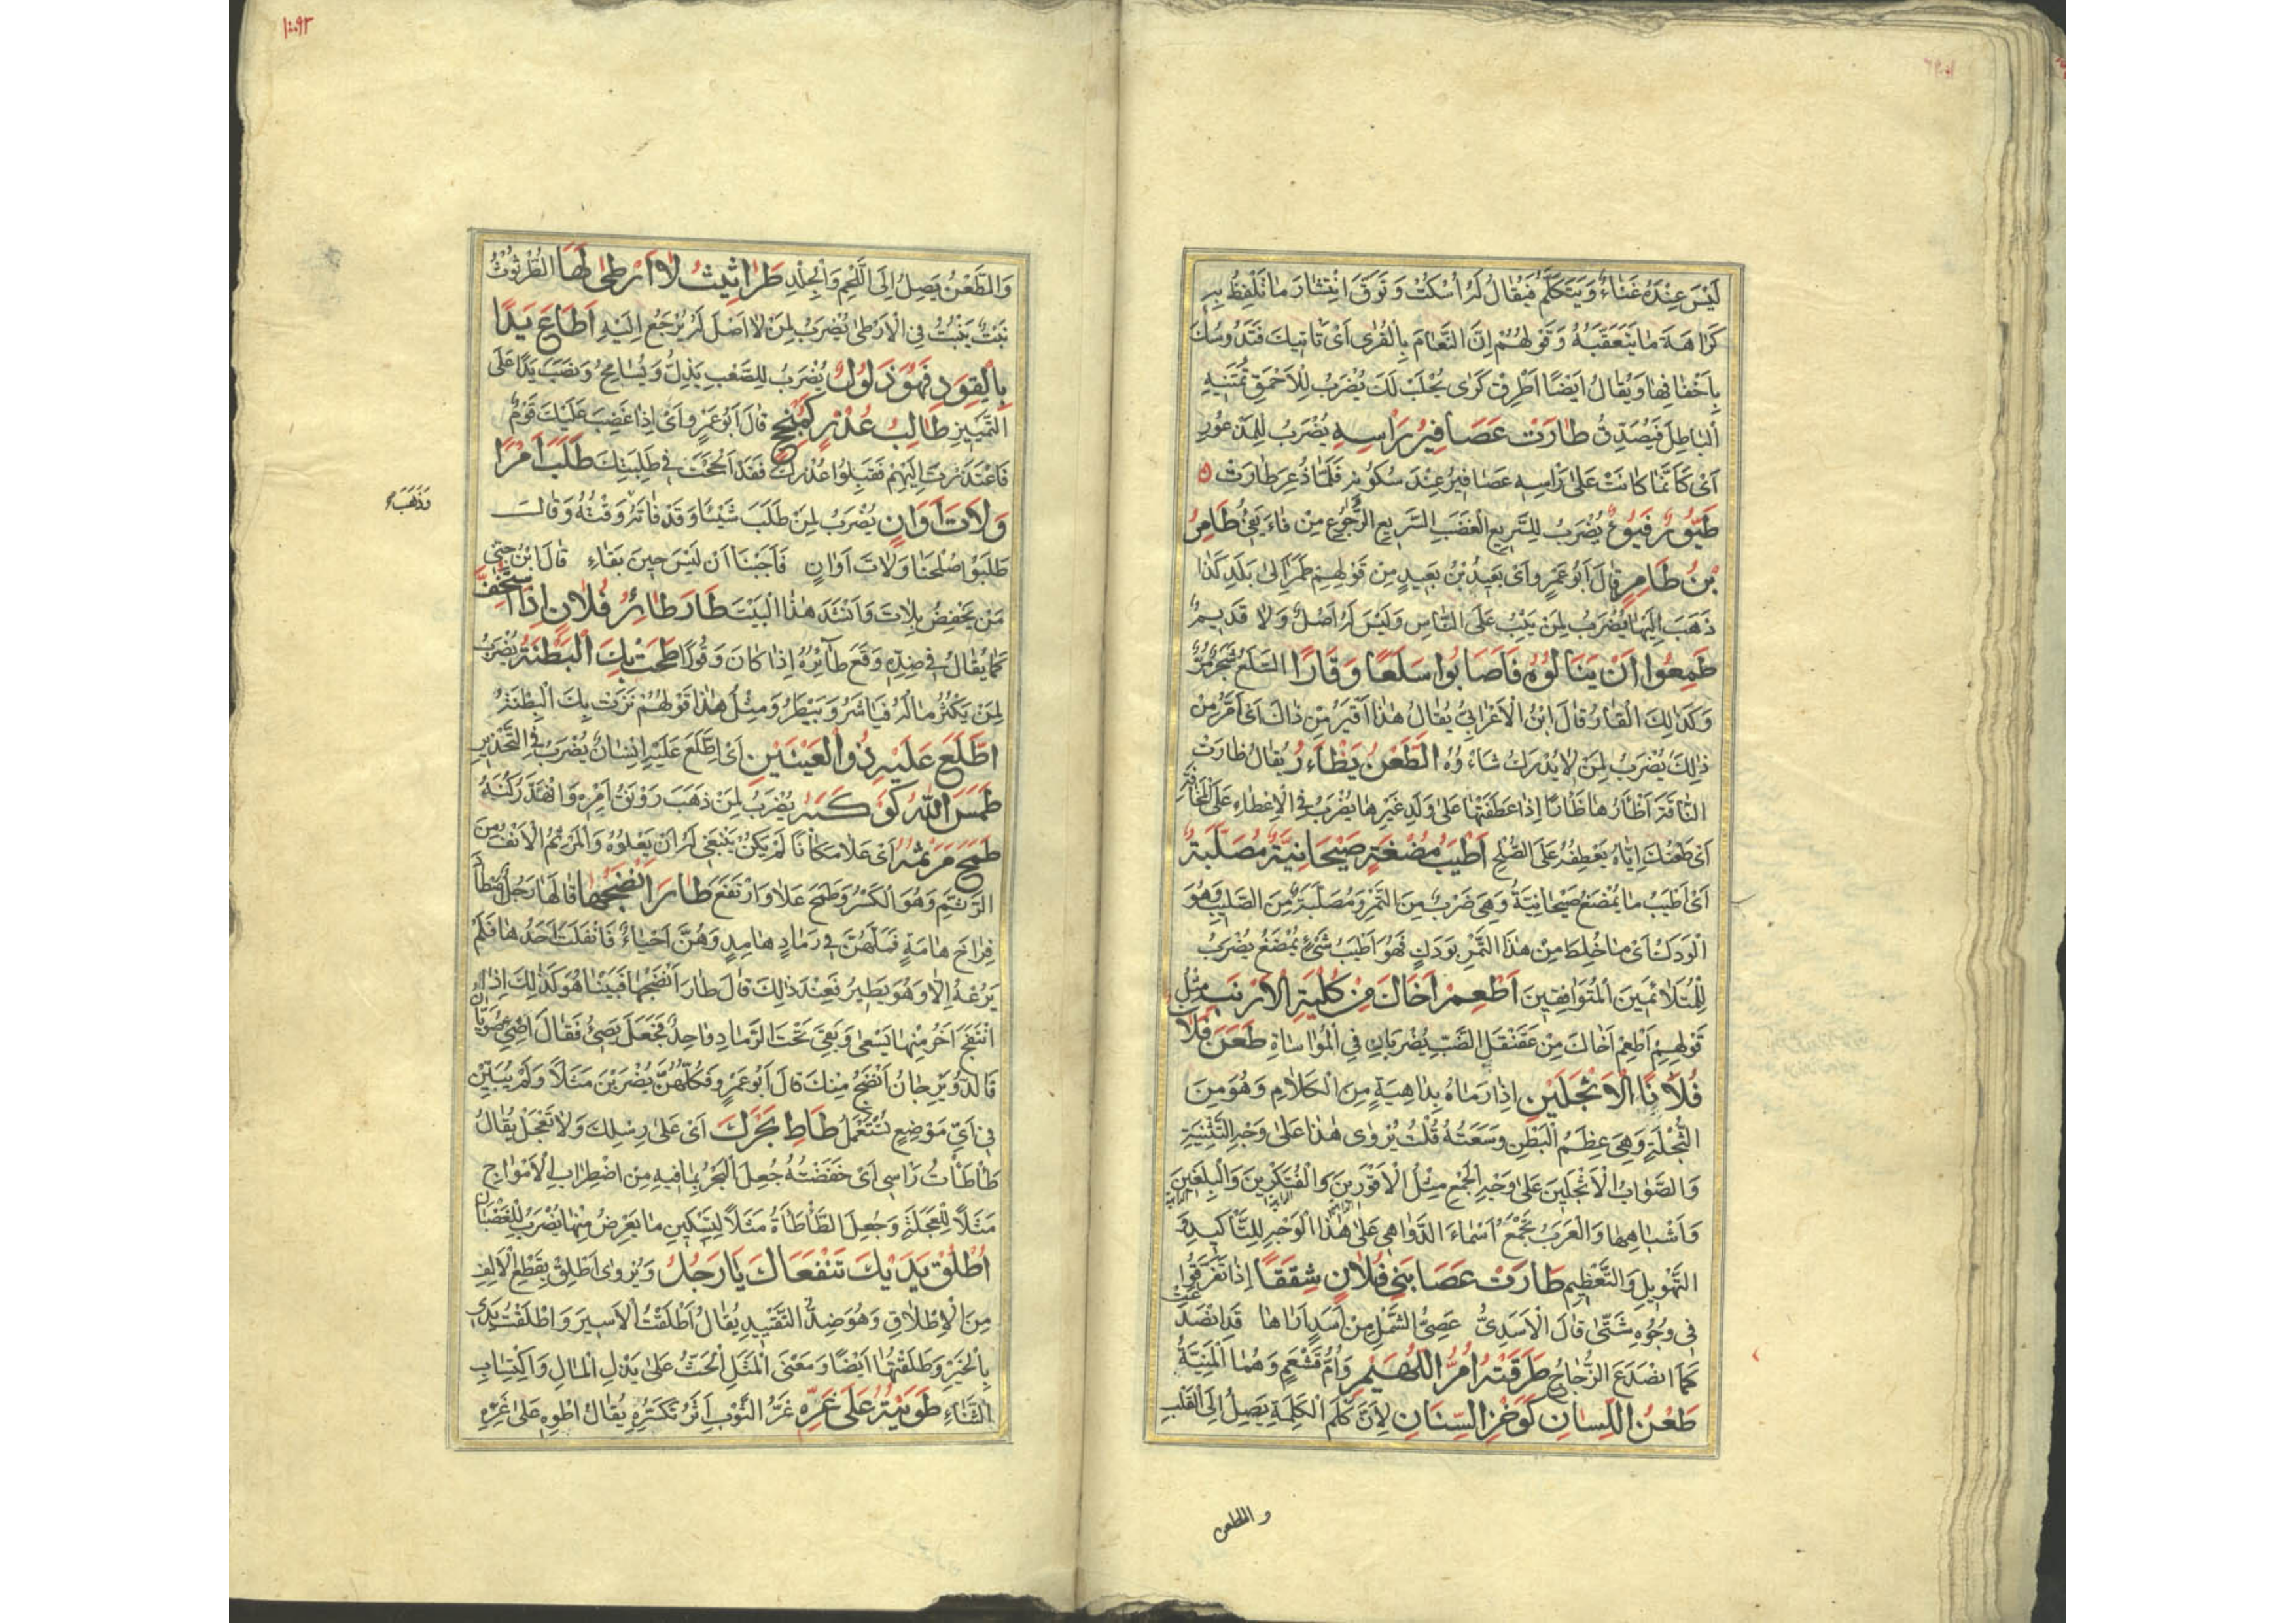 لَيْسَ عِنْدَهُ غَنَاءٌ وَيَتَكَلَّمُ فَيُقَالُ لَهُ اُسْكُتْ وَتَوَقَّ انْتِشَارَ مَا تَلْفِظُ بِهِ
كَرَاهَةَ مَا يَتَعَقَّبُهُ وَقَوْلُهُمْ اِنَّ النَّعَامَ بِالْقُرٰى اَىْ تَأْتِيكَ فَتَدُوسُكَ
بِاَخْفَافِهَا وَيُقَالُ اَيْضًا اَطْرِقْ كَرٰى يُحْلَبْ لَكَ يُضْرَبُ لِلْاَحْمَقِ تُمَنِّيهِ
الْبَاطِلَ فَيُصَدِّقُ طَارَتْ عَصَافِيرُ رَاْسِهِ يُضْرَبُ لِلْمَذْعُورِ
اَىْ كَاَنَّمَا كَانَتْ عَلٰى رَاْسِهِ عَصَافِيرُ عِنْدَ سُكُونِهِ فَلَمَّا ذُعِرَ طَارَتْ
طَيُّورٌ فَيُوءٌ يُضْرَبُ لِلسَّرِيعِ الْغَضَبِ السَّرِيعِ الرُّجُوعِ مِنْ فَاءَ يَفِىْءُ طَامِرُ
بْنُ طَامِرٍ قَالَ اَبُو عَمْرٍو اَىْ بَعِيدُ بْنُ بَعِيدٍ مِنْ قَوْلِهِمْ طَمَرَ اِلٰى بَلَدِ كَذَا
ذَهَبَ اِلَيْهَا يُضْرَبُ لِمَنْ يَثِبُ عَلَى النَّاسِ وَلَيْسَ لَهُ اَصْلٌ وَلَا قَدِيمٌ
طَمِعُوا اَنْ يَنَالُوهُ فَاَصَابُوا سَلَعًا وَقَارًا السَّلَعُ شَجَرٌ مُرٌّ
وَكَذٰلِكَ الْقَارُ قَالَ ابْنُ الْاَعْرَابِىِّ يُقَالُ هٰذَا اَقْيَرُ مِنْ ذَاكَ اَىْ اَمَرُّ مِنْ
ذٰلِكَ يُضْرَبُ لِمَنْ لَا يُدْرَكُ شَاْوُهُ الطَّعْنُ يَظْاَرُ يُقَالُ ظَاَرْتُ
النَّاقَةَ اَظْاَرُهَا ظَاْرًا اِذَا عَطَفْتَهَا عَلٰى وَلَدِ غَيْرِهَا يُضْرَبُ فِى الْاِعْطَاءِ عَلَى الْمَخَافَةِ
اَىْ طَعْنُكَ اِيَّاهُ يَعْطِفُهُ عَلَى الصُّلْحِ اَطْيَبُ مُضْغَةٍ صَيْحَانِيَّةٌ مُصَلَّبَةٌ
اَىْ اَطْيَبُ مَا يُمْضَغُ صَيْحَانِيَّةٌ وَهِىَ ضَرْبٌ مِنَ التَّمْرِ وَمُصَلَّبَةٌ مِنَ الصَّلِيبِ وَهُوَ
الْوَدَكُ اَىْ مَا خُلِطَ مِنْ هٰذَا التَّمْرِ بِوَدَكٍ فَهُوَ اَطْيَبُ شَىْءٍ يُمْضَغُ يُضْرَبُ
لِلْمُتَلَائِمَيْنِ الْمُتَوَافِقَيْنِ اَطْعِمْ اَخَاكَ مِنْ كُلْيَةِ الْاَرْنَبِ مِثْلُ
قَوْلِهِمْ اَطْعِمْ اَخَاكَ مِنْ عَقَنْقَلِ الضَّبِّ يُضْرَبَانِ فِى الْمُوَاسَاةِ طَعَنَ فُلَانٌ
فُلَانًا الْاَثْجَلَيْنِ اِذَا رَمَاهُ بِدَاهِيَةٍ مِنَ الْكَلَامِ وَهُوَ مِنَ
الثُّجْلَةِ وَهِىَ عِظَمُ الْبَطْنِ وَسَعَتُهُ قُلْتُ يُرْوٰى هٰذَا عَلٰى وَجْهِ التَّثْنِيَةِ
وَالصَّوَابُ الْاَثْجَلِينَ عَلٰى وَجْهِ الْجَمْعِ مِثْلُ الْاَقْوَرِينَ وَالْفُتَكْرِينَ وَالْبِلَغِينَ
وَاَشْبَاهِهَا وَالْعَرَبُ تَجْمَعُ اَسْمَاءَ الدَّوَاهِى عَلٰى هٰذَا الْوَجْهِ لِلتَّاْكِيدِ وَ
التَّهْوِيلِ وَالتَّعْظِيمِ طَارَتْ عَصَا بَنِى فُلَانٍ شِقَقًا اِذَا تَفَرَّقُوا
فِى وُجُوهٍ شَتّٰى قَالَ الْاَسَدِىُّ عَصِىُّ الشَّمْلِ مِنْ اَسَدٍ اَرَاهَا قَدِ انْصَدَعَتْ
كَمَا انْصَدَعَ الزُّجَاجُ طَرَقَتْهُ اُمُّ اللُّهَيْمِ وَاُمُّ قَشْعَمٍ وَهُمَا الْمَنِيَّةُ
طَعْنُ اللِّسَانِ كَوَخْزِ السِّنَانِ لِاَنَّ كَلْمَ الْكَلِمَةِ يَصِلُ اِلَى الْقَلْبِ
والطعن
١٠٩٣
وَالطَّعْنُ يَصِلُ اِلَى اللَّحْمِ وَالْجِلْدِ طَرَاثِيثُ لَا اَرْطٰى لَهَا الطُّرْثُوثُ
نَبْتٌ يَنْبُتُ فِى الْاَرْطٰى يُضْرَبُ لِمَنْ لَا اَصْلَ لَهُ يُرْجَعُ اِلَيْهِ اَطَاعَ يَدًا
بِالْقَوَدِ فَهُوَ ذَلُولٌ يُضْرَبُ لِلصَّعْبِ يَذِلُّ وَيُسَامِحُ وَنَصَبَ يَدًا عَلَى
التَّمْيِيزِ طَالِبُ عُذْرٍ كَمُنْجِحٍ قَالَ اَبُو عَمْرٍو اَىْ اِذَا غَضِبَ عَلَيْكَ قَوْمٌ
فَاعْتَذَرْتَ اِلَيْهِمْ فَقَبِلُوا عُذْرَكَ فَقَدْ اَنْجَحْتَ فِى طَلِبَتِكَ طَلَبَ اَمْرًا
وَلَاتَ اَوَانٍ يُضْرَبُ لِمَنْ طَلَبَ شَيْئًا وَقَدْ فَاتَهُ وَقْتُهُ وَقَالَ
وَذَهَبَ
طَلَبُوا صُلْحَنَا وَلَاتَ اَوَانٍ فَاَجَبْنَا اَنْ لَيْسَ حِينَ بَقَاءِ قَالَ ابْنُ جِنِّى
مَنْ يَخْفِضُ بِلَاتَ وَاَنْشَدَ هٰذَا الْبَيْتَ طَارَ طَائِرُ فُلَانٍ اِذَا اسْتُخِفَّ
كَمَا يُقَالُ فِى ضِدِّهِ وَقَعَ طَائِرُهُ اِذَا كَانَ وَقُورًا طَمَحَتْ بِكَ الْبِطْنَةُ يُضْرَبُ
لِمَنْ يَكْثُرُ مَالُهُ فَيَاْشَرُ وَيَبْطَرُ وَمِثْلُ هٰذَا قَوْلُهُمْ نَزَتْ بِكَ الْبِطْنَةُ
اِطَّلَعَ عَلَيْهِ ذُو الْعَيْنَيْنِ اَىْ اِطَّلَعَ عَلَيْهِ اِنْسَانٌ يُضْرَبُ فِى التَّحْذِيرِ
طَمَسَ اللّٰهُ كَوْكَبَهُ يُضْرَبُ لِمَنْ ذَهَبَ رَوْنَقُ اَمْرِهِ وَانْهَدَّ رُكْنُهُ
طَمَحَ مَرْثَمُهُ اَىْ عَلَا مَكَانًا لَمْ يَكُنْ يَنْبَغِى لَهُ اَنْ يَعْلُوَهُ وَالْمَرْثِمُ الْاَنْفُ مِنَ
الرَّثْمِ وَهُوَ الْكَسْرُ وَطَمَحَ عَلَا وَارْتَفَعَ طَارَ اَنْضَجُهَا قَالَهَا رَجُلٌ اصْطَادَ
فِرَاخَ هَامَةٍ فَمَلَّهُنَّ فِى رَمَادٍ هَامِدٍ وَهُنَّ اَحْيَاءٌ فَانْفَلَتَ اَحَدُهَا فَلَمْ
يَرُعْهُ اِلَّا وَهُوَ يَطِيرُ فَعِنْدَ ذٰلِكَ قَالَ طَارَ اَنْضَجُهَا فَبَيْنَا هُوَ كَذٰلِكَ اِذِ
انْتَفَجَ اٰخَرُ مِنْهَا يَسْعٰى وَبَقِىَ تَحْتَ الرَّمَادِ وَاحِدٌ فَجَعَلَ يَصِىءُ فَقَالَ
قَالَ اَبُو عَمْرٍو فَكُلُّهُنَّ يُضْرَبْنَ مَثَلًا وَلَمْ يُبَيِّنْ
فِى اَىِّ مَوْضِعٍ تُسْتَعْمَلُ طَاْطِ بَحْرَكَ اَىْ عَلٰى رِسْلِكَ وَلَا تَعْجَلْ يُقَالُ
طَاْطَاْتُ رَاْسِى اَىْ خَفَضْتُهُ جُعِلَ الْبَحْرُ بِمَا فِيهِ مِنِ اضْطِرَابِ الْاَمْوَاجِ
مَثَلًا لِلْعَجَلَةِ وَجُعِلَ الطَّاْطَاَةُ مَثَلًا لِتَسْكِينِ مَا يَعْرِضُ مِنْهَا يُضْرَبُ لِلْغَضْبَانِ
اُطْلُقْ يَدَيْكَ تَنْفَعَاكَ يَا رَجُلُ وَيُرْوٰى اَطْلِقْ بِقَطْعِ الْاَلِفِ
مِنَ الْاِطْلَاقِ وَهُوَ ضِدُّ التَّقْيِيدِ يُقَالُ اَطْلَقْتُ الْاَسِيرَ وَاَطْلَقْتُ يَدِى
بِالْخَيْرِ وَطَلَقْتُهَا اَيْضًا وَمَعْنَى الْمَثَلِ الْحَثُّ عَلٰى بَذْلِ الْمَالِ وَاكْتِسَابِ
الثَّنَاءِ طَوَيْتُهُ عَلٰى غَرِّهِ غَرُّ الثَّوْبِ اَثَرُ تَكَسُّرِهِ يُقَالُ اطْوِهِ عَلٰى غَرِّهِ